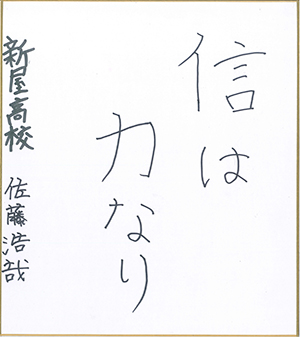 信は
力なり
新屋高校 佐藤浩哉